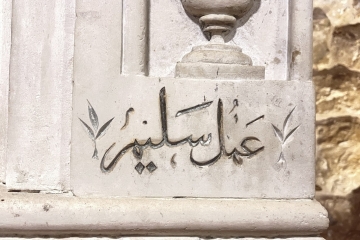 عمل سليم